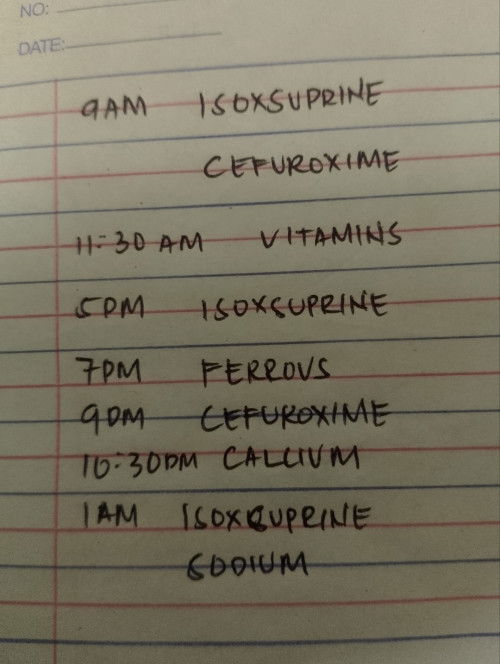 NO:
DATE:
9AM ISOXSUPRINE
CEFUROXIME
11:30 AM VITAMINS
5PM ISOXSUPRINE
7PM FERROUS
9PM CEFUROXIME
10:30PM CALCIUM
1AM ISOXSUPRINE
SODIUM